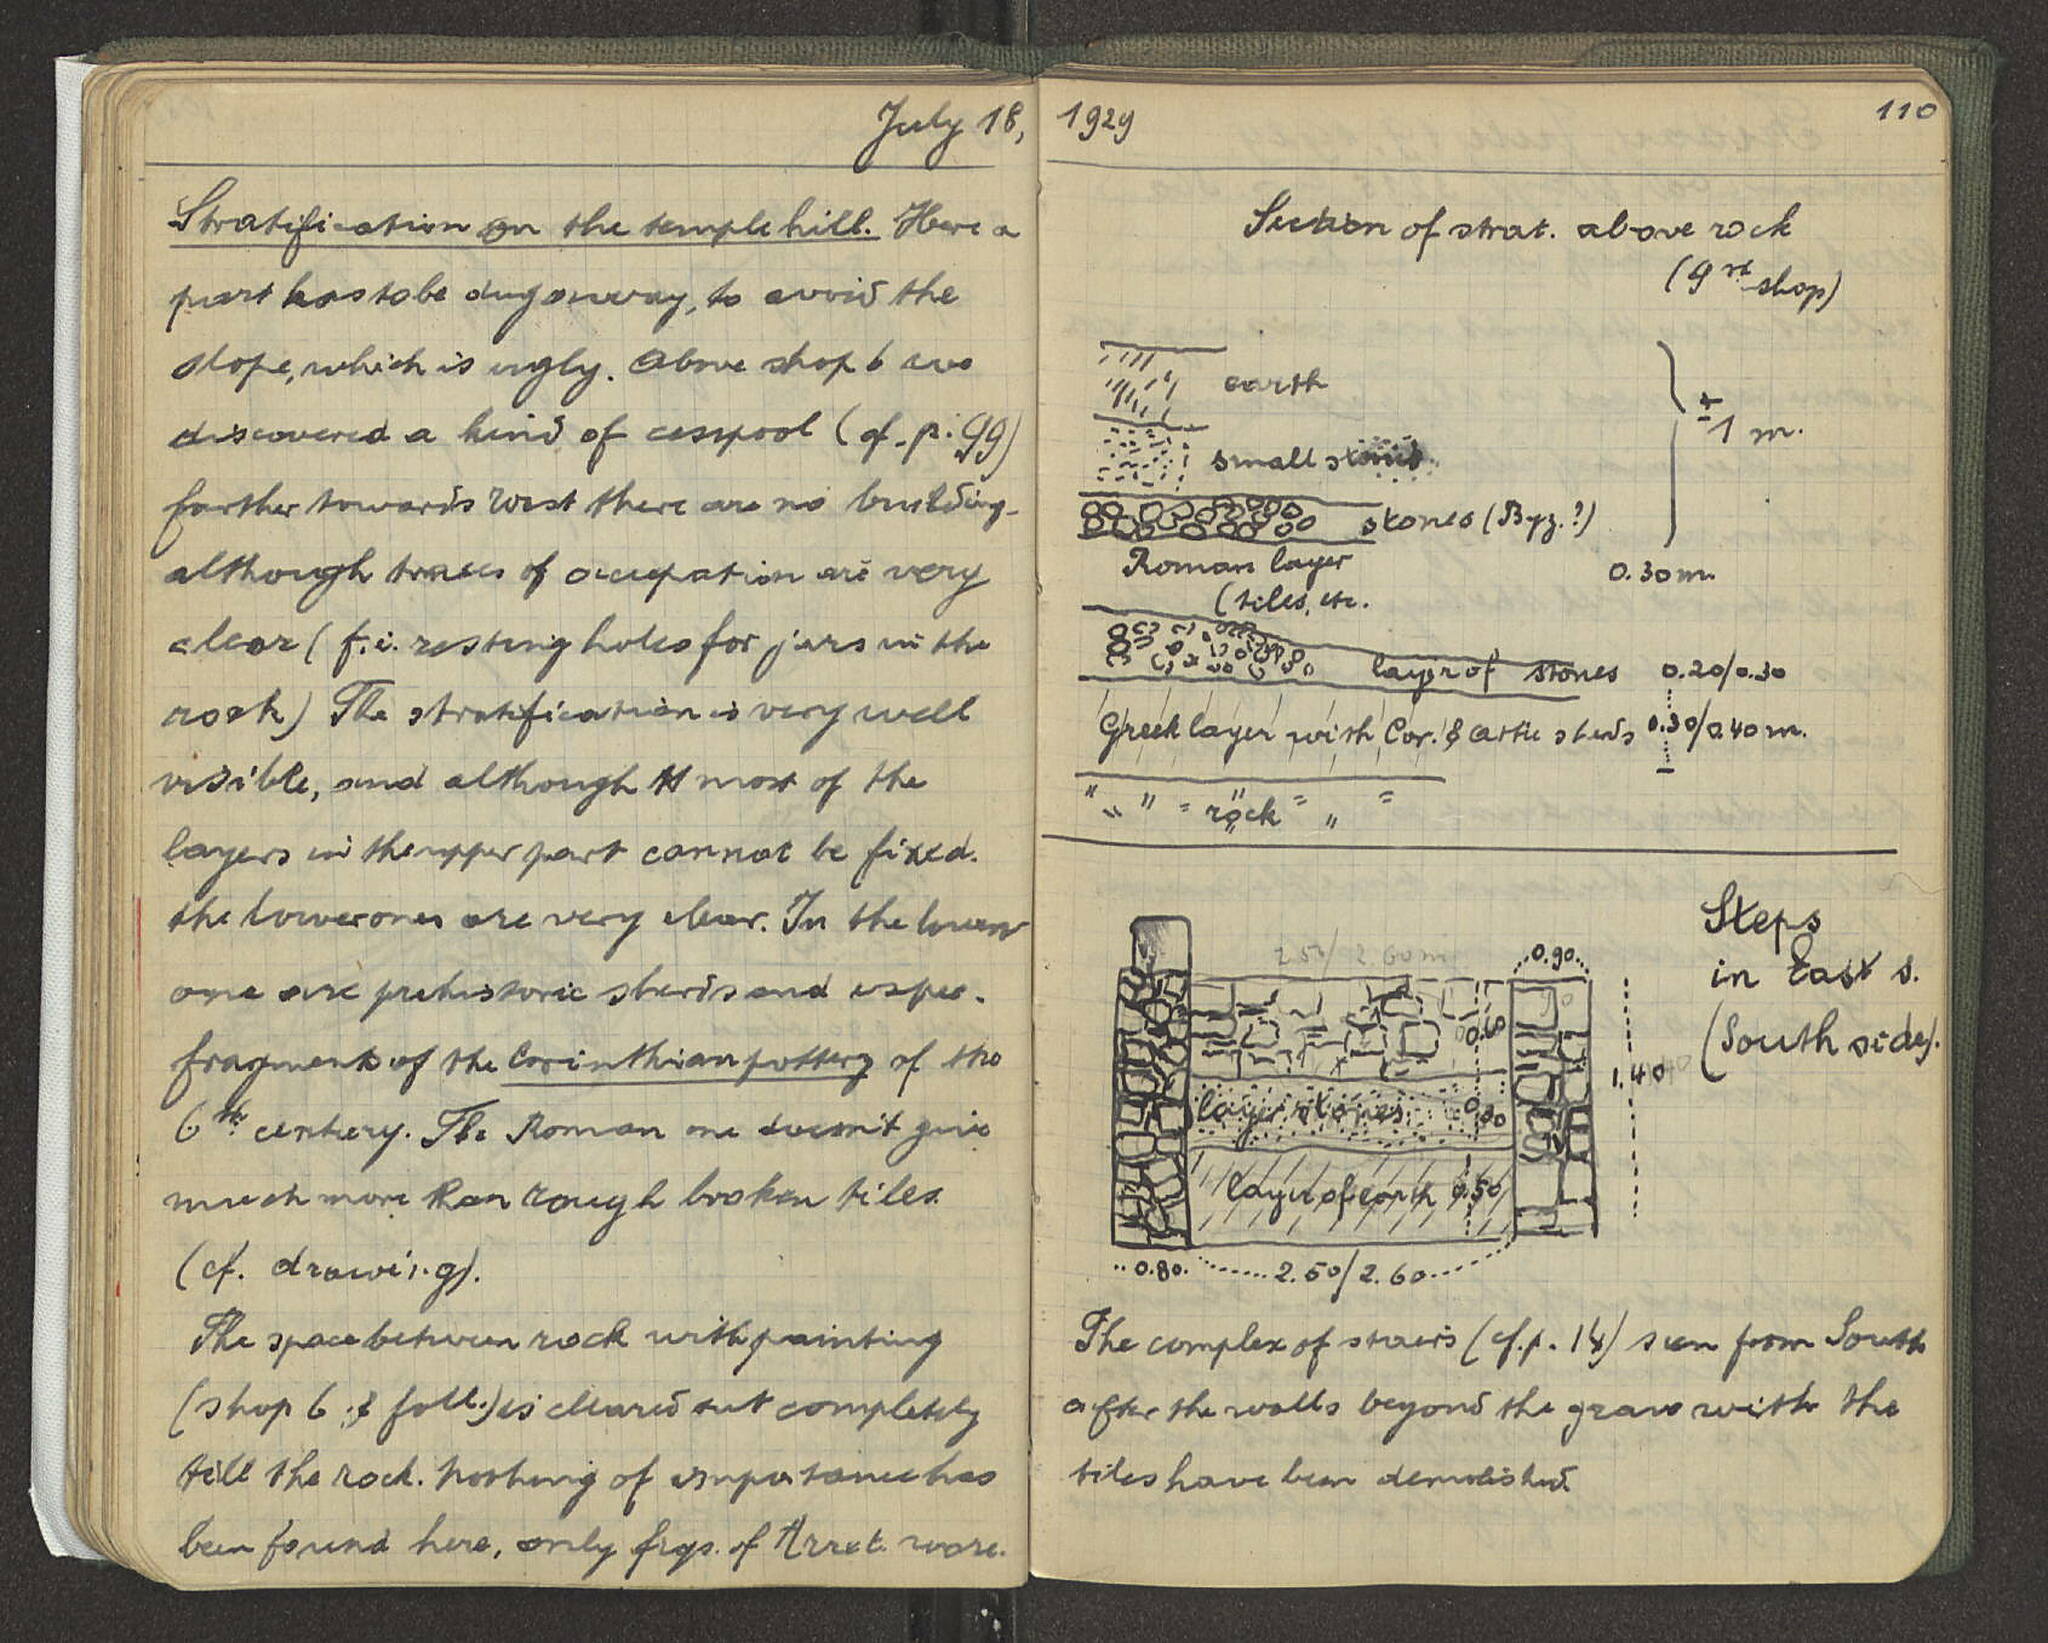 July 18,
Stratification on the temple hill. Here a
part has to be dug away, to avoid the
slope, which is ugly. Above shop 6 we
discovered a kind of cesspool (cf. p. 99)
farther towards West there are no building-
although traces of occupation are very
clear (f.i. resting holes for jars in the
rock) The stratification is very well
visible, and although most of the
layers in the upper part cannot be fixed.
the lower ones are very clear. In the lower
one are prehistoric sherds and espec.
fragments of the Corinthian pottery of the
6th century. The Roman one doesn't give
much more than rough broken tiles.
(cf. drawing).
The space between rock with painting
(shop 6 & foll.) is cleared out completely
till the rock. Nothing of importance has
been found here, only frgs. of Arret. ware.
1929
110
Section of strat. above rock
(9 shop)
earth
± 1 m.
small stones
stones (Byz.?)
Roman layer
0.30 m.
(tiles, etc.
layer of stones 0.20/0.30
Greek layer with Cor. & Attic sherds 0.30/0.40 m.
rock
Steps
in East s.
(South side).
2.50/2.60 m
0.90
0.60
1.40
layer stones
layer of earth 0.50
0.80
2.50/2.60
The complex of stairs (cf. p. ) seen from South
after the walls beyond the grave with the
tiles have been demolished.